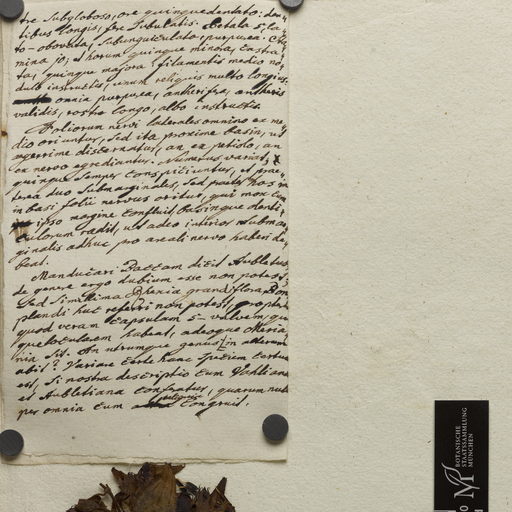 tre Subgloboso, ore quinquedentato: den-
tibus longis, fere Subulatis. Petala 5, la-
to-obovata, Subunguiculata, purpurea. Sta-
mina 10; et horum quinque minora, castra-
ta, quinque majora: filamentis medio no-
dulo instructis, unum reliquis multo longius,
omnia purpurea, antherifera, antheris
validis, rostro longo, albo instructis.
Foliorum nervi laterales omnino ex me-
dio oriuntur, Sed ita proxime basin, ut
aegerrime discernatur, an ex petiolo, an
ex nervo egrediantur. Numerus variat,
quinque Semper conspiciuntur, et prae-
terea duo Submarginales, Sed praeter hos in
in basi folii nervus oritur, qui mox cum
ipso margine confluit, basinque denti-
culorum radit, ut adeo interior Submar-
ginalis adhuc pro areali nervo haberi de-
beat.
Manducari Baccam dicit Aubletus
de genere ergo dubium esse non potest;
Sed Simillima Rhexia grandiflora Bon-
plandi huc referri non potest, propterea
quod veram Capsulam 5-valvem, quin-
quelocularem habeat, adeoque Meria-
nia Sit. An utrumque genus in alterum
abit? Variare certe hanc Speciem certum
est, Si nostra descriptio cum Vahliana
et Aubletiana conferatur, quarum nulla
per omnia cum congruit.
BOTANISCHE
STAATSSAMMLUNG
MÜNCHEN
M